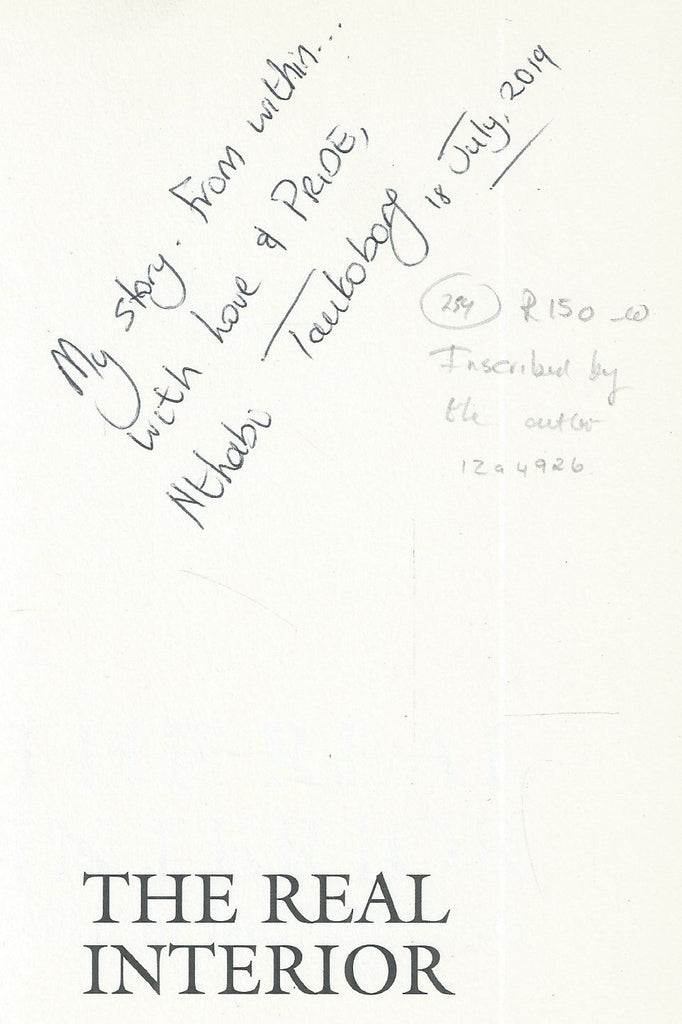 My story. From within...
with love & PRIDE,
Nthabi Taukobong 18 July, 2019
254 R150-00
Inscribed by
the author
12a4926
THE REAL
INTERIOR